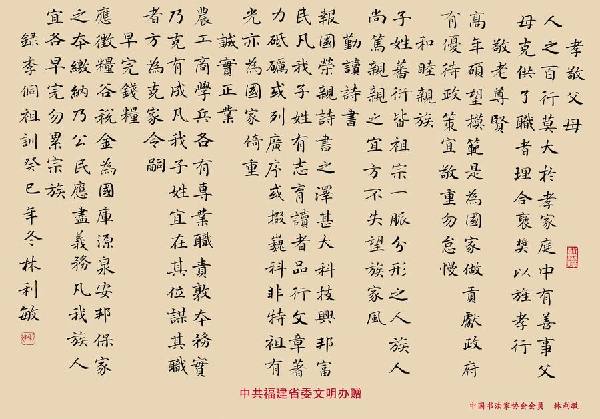 孝敬父母
人之百行莫大於孝家庭中有善事父
母克供了職者理合褒獎以旌孝行
敬老尊賢
高年碩望模範是為國家做貢獻政府
有優待政策宜敬重勿怠慢
和睦親族
子姓蕃衍皆祖宗一脈分形之人族人
尚篤親親之宜方不失望族家風
勤讀詩書
報國榮親詩書之澤甚大科技興邦富
民凡我子姓有志育讀者品行文章著
力砥礪或列廣序或掇巍科非特祖有
光亦為國家倚重
誠實正業
農工商學兵各有專業職責敦本務實
乃克有成凡我子姓宜在其位謀其職
者方為克家令嗣
早完錢糧
應徵糧谷稅金為國庫源泉安邦保家
之本繳納乃公民應盡義務凡我族人
宜各早完勿累宗族
錄李侗祖訓癸巳年冬林利敏
中共福建省委文明办赠
中国书法家协会会员 林利敏